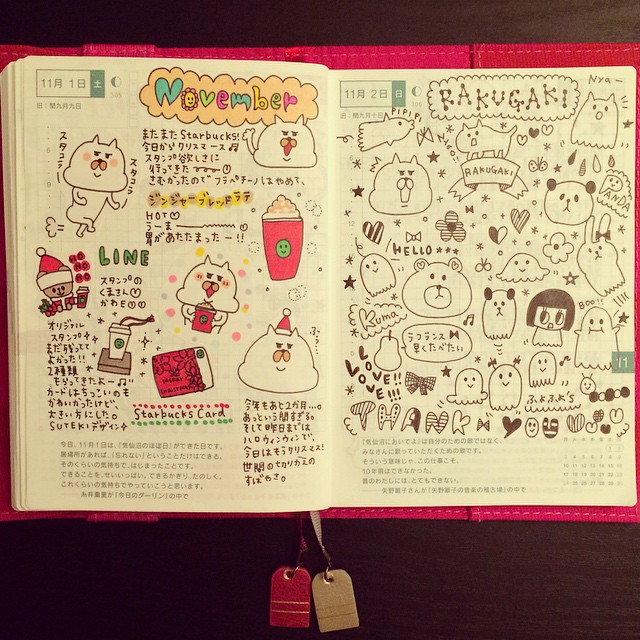 11月 1日 土
旧:閏九月九日
November
スタコラ
スタコラ
またまた Starbucks!
今日からクリスマース♫
スタンプ欲しさに
行ってきた
さむかったのでフラペチーノはやめて、
ジンジャーブレッドラテ
HOT♡
うーま
胃があたたまったー!!
HO
HO
HO
LINE
スタンプの
くまさん♡
かわE
オリジナル
スタンプ
まだ残ってて
よかった!!
2種類
もらってきたよー♫
カードはちっこいのも
かわいかったけど、
大きい方にした。
SUTEKIデザイン
MERRY
CHRISTMAS
Starbucks Card
ふぅ〜
今年もあと2か月...。
あっという間すぎる。
そして昨日まで
ハロウィンウィンで、
今日はもうクリスマス!
世間のきりかえの
すばやさ。
今日、11月1日は、「気仙沼のほぼ日」ができた日です。
置場所があれば、「忘れない」ということだけはできる。
そのくらいの気持ちで、はじまったことです。
できることを、せいいっぱい、できるかぎり、たのしく。
これくらいの気持ちでやっていこうと思います。
——糸井重里が『今日のダーリン』の中で
11月 2日 日
旧:閏九月十日
RAKUGAKI
Nya〜
PIPIPI
RAKUGAKI
PANDA
HELLO***
Kuma
BOO!!
ラフランス
早くたべたい
LOVE!!
LOVE!!
ふよふよ's
11
THANK
「気仙沼においでよ」は自分のための歌ではなく、
みなさんに歌っていただくための歌です。
そういう意味じゃ、この仕事こそ、
10年前はできなかった。
昔のわたしには、とてもできない。
——矢野顕子さんが『矢野顕子の音楽の稽古場』の中で